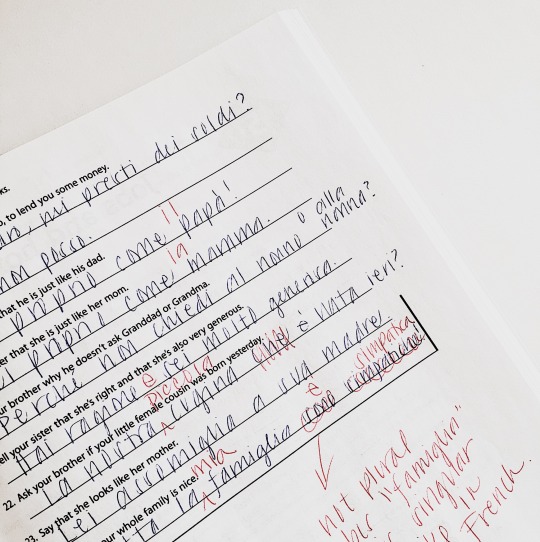 ks.
, to lend you some money.
mi presti dei soldi?
non posso.
that he is just like his dad.
proprio come il papà!
er that she is just like her mom.
proprio come la mamma.
ur brother why he doesn't ask Granddad or Grandma.
Perché non chiedi al nonno o alla nonna?
ell your sister that she's right and that she's also very generous.
Hai ragione e sei molto generosa.
22. Ask your brother if your little female cousin was born yesterday.
La nostra piccola cugina è nata ieri?
23. Say that she looks like her mother.
Lei assomiglia a sua madre.
your whole family is nice.
la mia famiglia è simpatica
not plural
"famiglia"
singular
in
French.